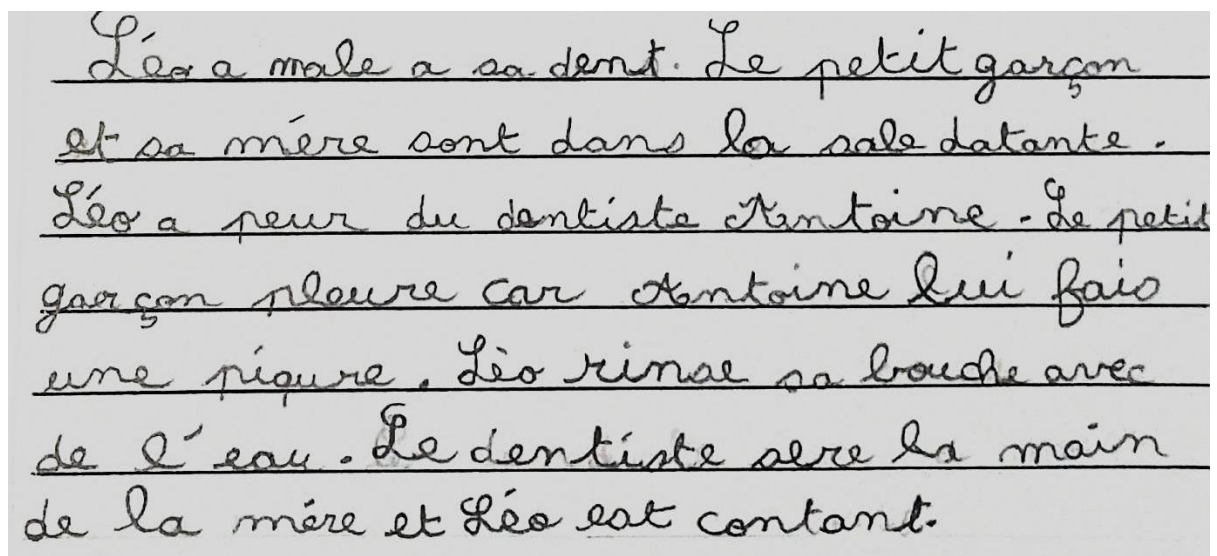 Léo a male a sa dent. Le petit garçon
et sa mére sont dans la sale datante.
Léo a peur du dentiste Antoine. Le petit
garçon pleure car Antoine lui fais
une piqure. Léo rinse sa bouche avec
de l'eau. Le dentiste sere la main
de la mére et Léo est contant.